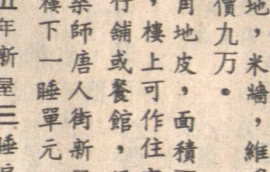 地，米牆，維
價九万。
角地皮，面積
，樓上可作住
行鋪或餐館，
師唐人街新
樓下一睡單元
年新屋三睡